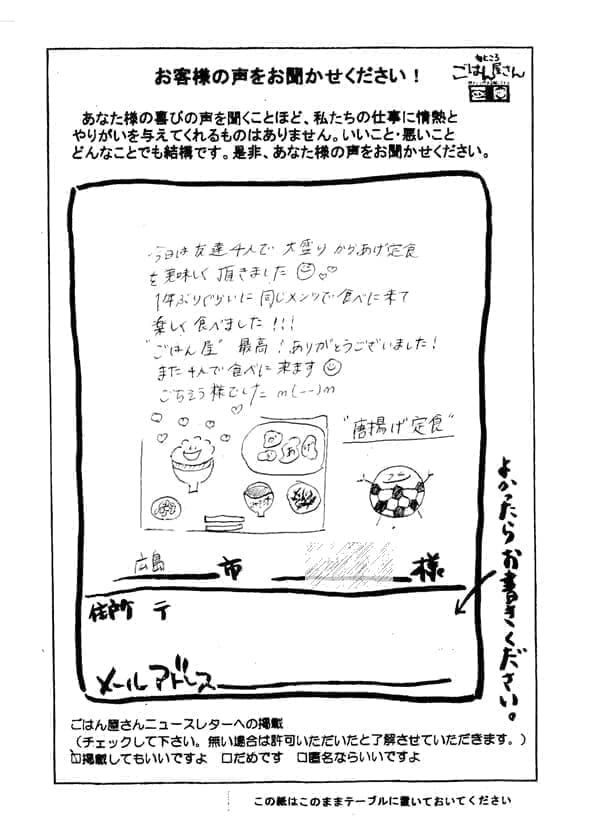 旬ところ
ごはん屋さん
お客様の声をお聞かせください！
あなた様の喜びの声を聞くことほど、私たちの仕事に情熱と
やりがいを与えてくれるものはありません。いいこと・悪いこと
どんなことでも結構です。是非、あなた様の声をお聞かせください。
今日は友達4人で 大盛り からあげ定食
を美味しく頂きました
1年ぶりぐらいに同じメンツで食べに来て
楽しく食べました!!!
"ごはん屋" 最高！ありがとうございました！
また4人で食べに来ます
ごちそう様でした m(--)m
からあげ
"唐揚げ定食"
広島市 様
住所 〒
メールアドレス
よかったらお書きください。
ごはん屋さんニュースレターへの掲載
（チェックして下さい。無い場合は許可いただいたと了解させていただきます。）
☑掲載してもいいですよ □だめです □匿名ならいいですよ
この紙はこのままテーブルに置いておいてください